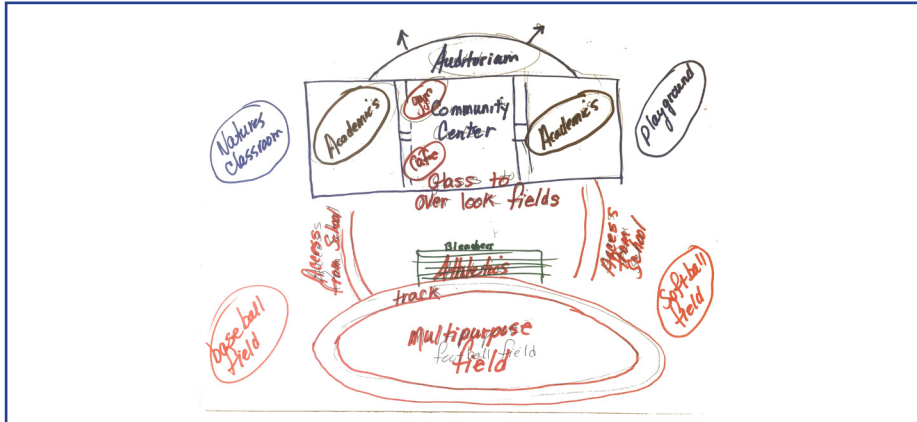 Auditorium
Natures
Classroom
Academic's
gym
Community
Center
Cafe
Academic's
playground
Glass to
over look fields
Access
from School
Access
from
School
Bleachers
Athletic's
track
baseball
field
Softball
field
Multipurpose
field
football field